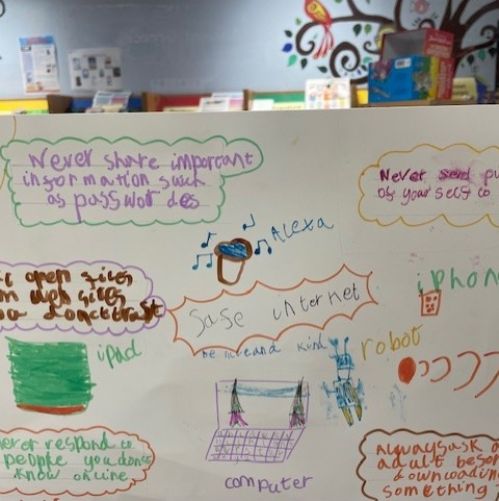 Never share important
information such
as passwor des
Never send pu
of your self to
Alexa
open sites
web sites
iphon
safe internet
be and kind
ipad
robot
never respond to
people you dont
know online
computer
Always ask a
adult before
downloadin
something